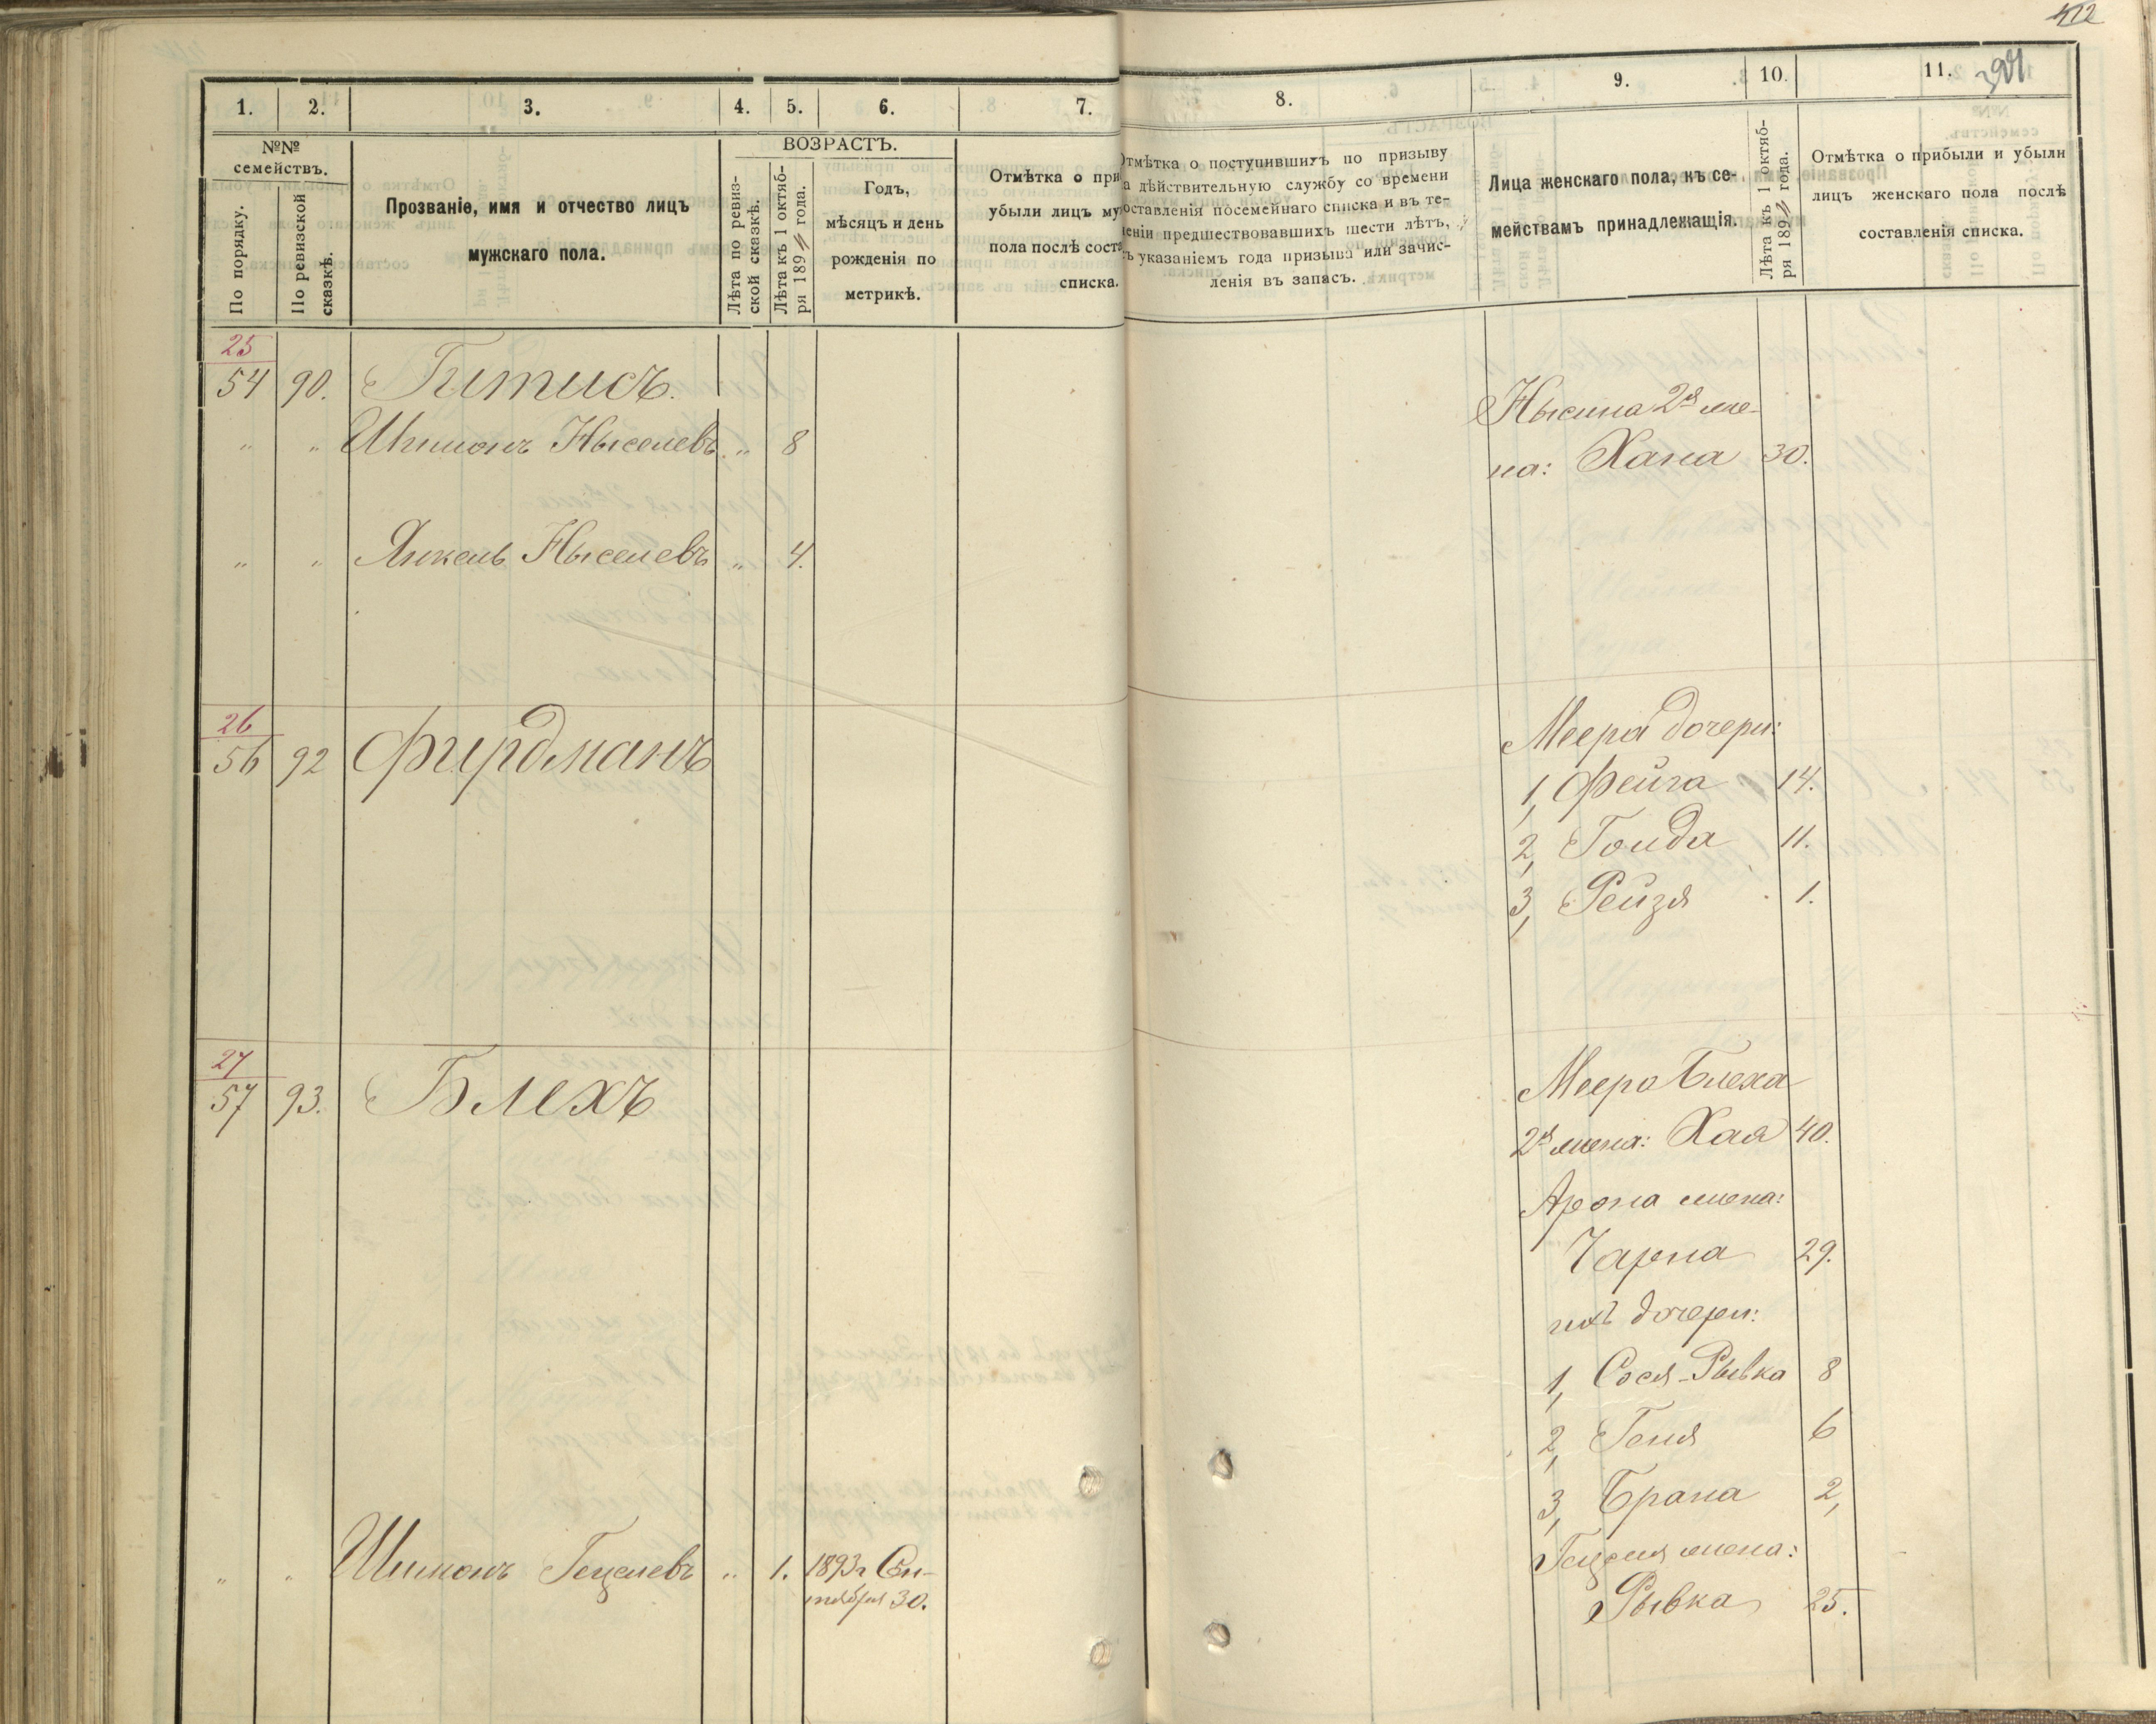 412
1. 2. 3. 4. 5. 6. 7. 8. 9. 10. 11.
№№ семействъ.
По порядку.
По ревизской сказкѣ.
Прозваніе, имя и отчество лицъ
мужскаго пола.
ВОЗРАСТЪ.
Лѣта по ревиз-
ской сказкѣ.
Лѣта къ 1 октяб-
ря 189 года.
Годъ,
мѣсяцъ и день
рожденія по
метрикѣ.
Отмѣтка о при
убыли лицъ му
пола послѣ соста
списка.
Отмѣтка о поступившихъ по призыву
а дѣйствительную службу со времени
оставленія посемейнаго списка и въ те-
еніи предшествовавшихъ шести лѣтъ,
ъ указаніемъ года призыва или зачис-
ленія въ запасъ.
Лица женскаго пола, къ се-
мействамъ принадлежащія.
Лѣта къ 1 октяб-
ря 189 года.
Отмѣтка о прибыли и убыли
лицъ женскаго пола послѣ
составленія списка.
25
54 90. Гитисъ.
" " Шимонъ Ныселевъ " 8
" " Янкель Ныселевъ " 4.
Нысина 2я же-
на: Хана 30.
26
56 92 Фирдманъ
Меера дочери:
1, Фейга 14.
2, Голда 11.
3, Рейзя 1.
27
57 93. Блехъ
Меера Блеха
2я жена: Хая 40.
Арона жена:
Чарна 29.
ихъ дочери:
1, Сося-Рывка 8
2, Геня 6
3, Брана 2,
" " Шимонъ Гецелевъ " 1. 1893г Сен-
тября 30.
Гецеля жена:
Рывка 25.